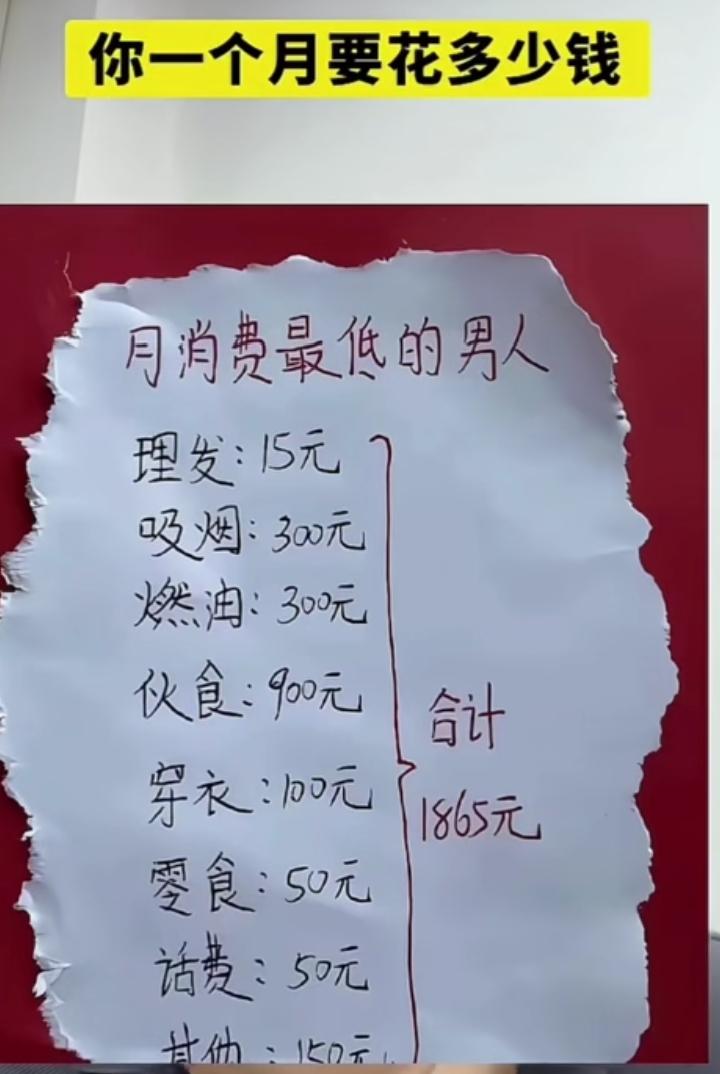 你一个月要花多少钱
月消费最低的男人
理发：15元
吸烟：300元
燃油：300元
伙食：900元
穿衣：100元
零食：50元
话费：50元
其他：150元
合计
1865元